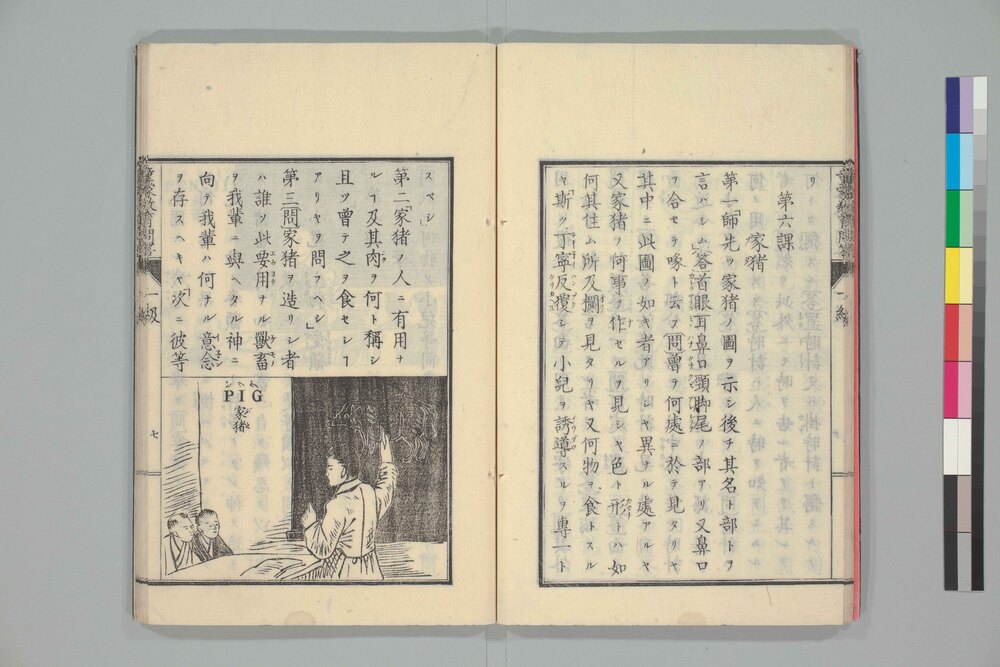 リ
第六課
家猪
第一「師先ツ家猪ノ圖ヲ示シ後チ其名ト部トヲ
言ハシム」答首眼耳鼻口頸脚尾ノ部アリ又鼻口
ヲ合セテ啄ト云フ問曾テ何處ニ於テ見タリヤ
其中ニ此圖ノ如キ者アリシヤ異ナル處アルヤ
又家猪ノ何事ヲ作セルヲ見シヤ色ト形トハ如
何其住ム所及圈ヲ見タリヤ又何物ヲ食トスル
ヤ「斯ク丁寧反覆シテ小兒ヲ誘導スルヲ專一ト
スベシ」
第二「家猪ノ人ニ有用ナ
ルヿ及其肉ヲ何ト稱シ
且ツ曾テ之ヲ食セシヿ
アリヤヲ問フヘシ」
第三問家猪ヲ造リシ者
ハ誰ソ此要用ナル獸畜
ヲ我輩ニ與ヘタル神ニ
向テ我輩ハ何ナル意念
ヲ存スヘキヤ「次ニ彼等
PIG
家猪
一級
七